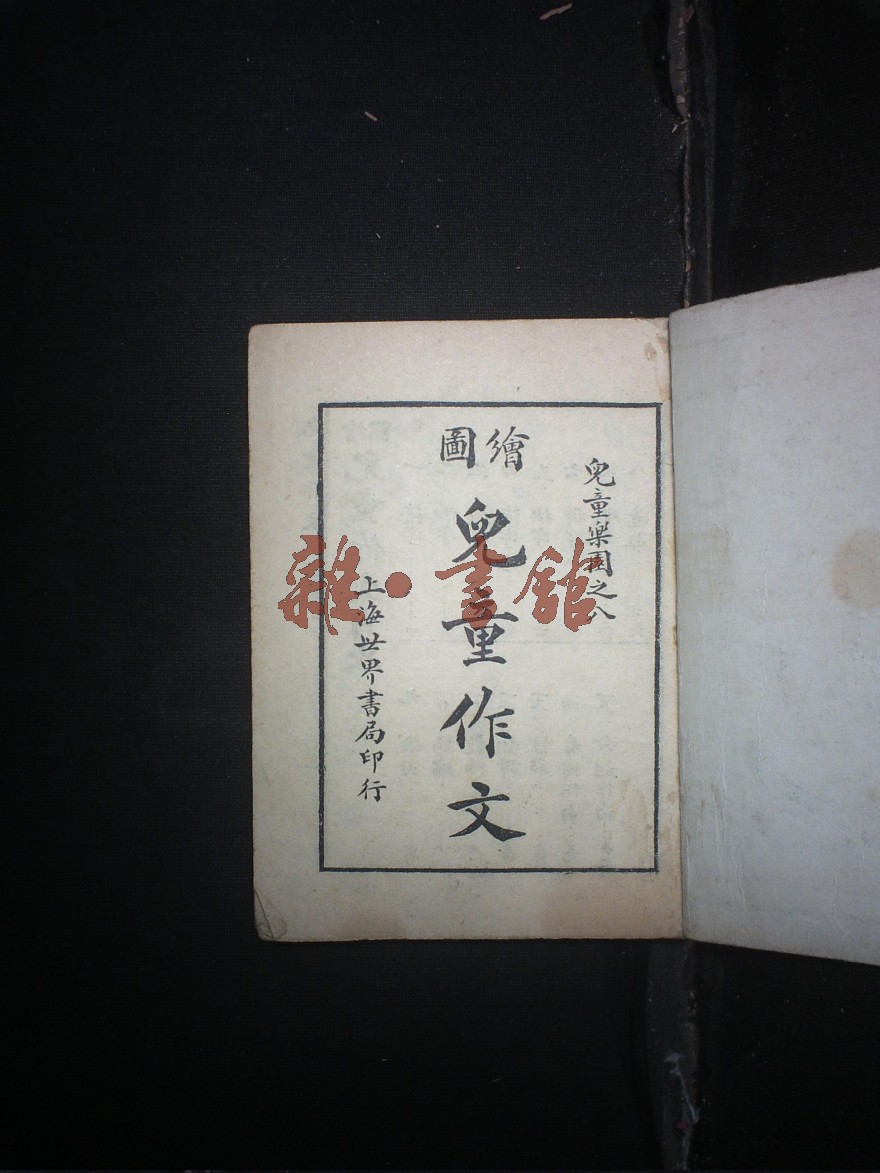 兒童樂園之八
繪圖
兒童作文
上海世界書局印行
雜·書館